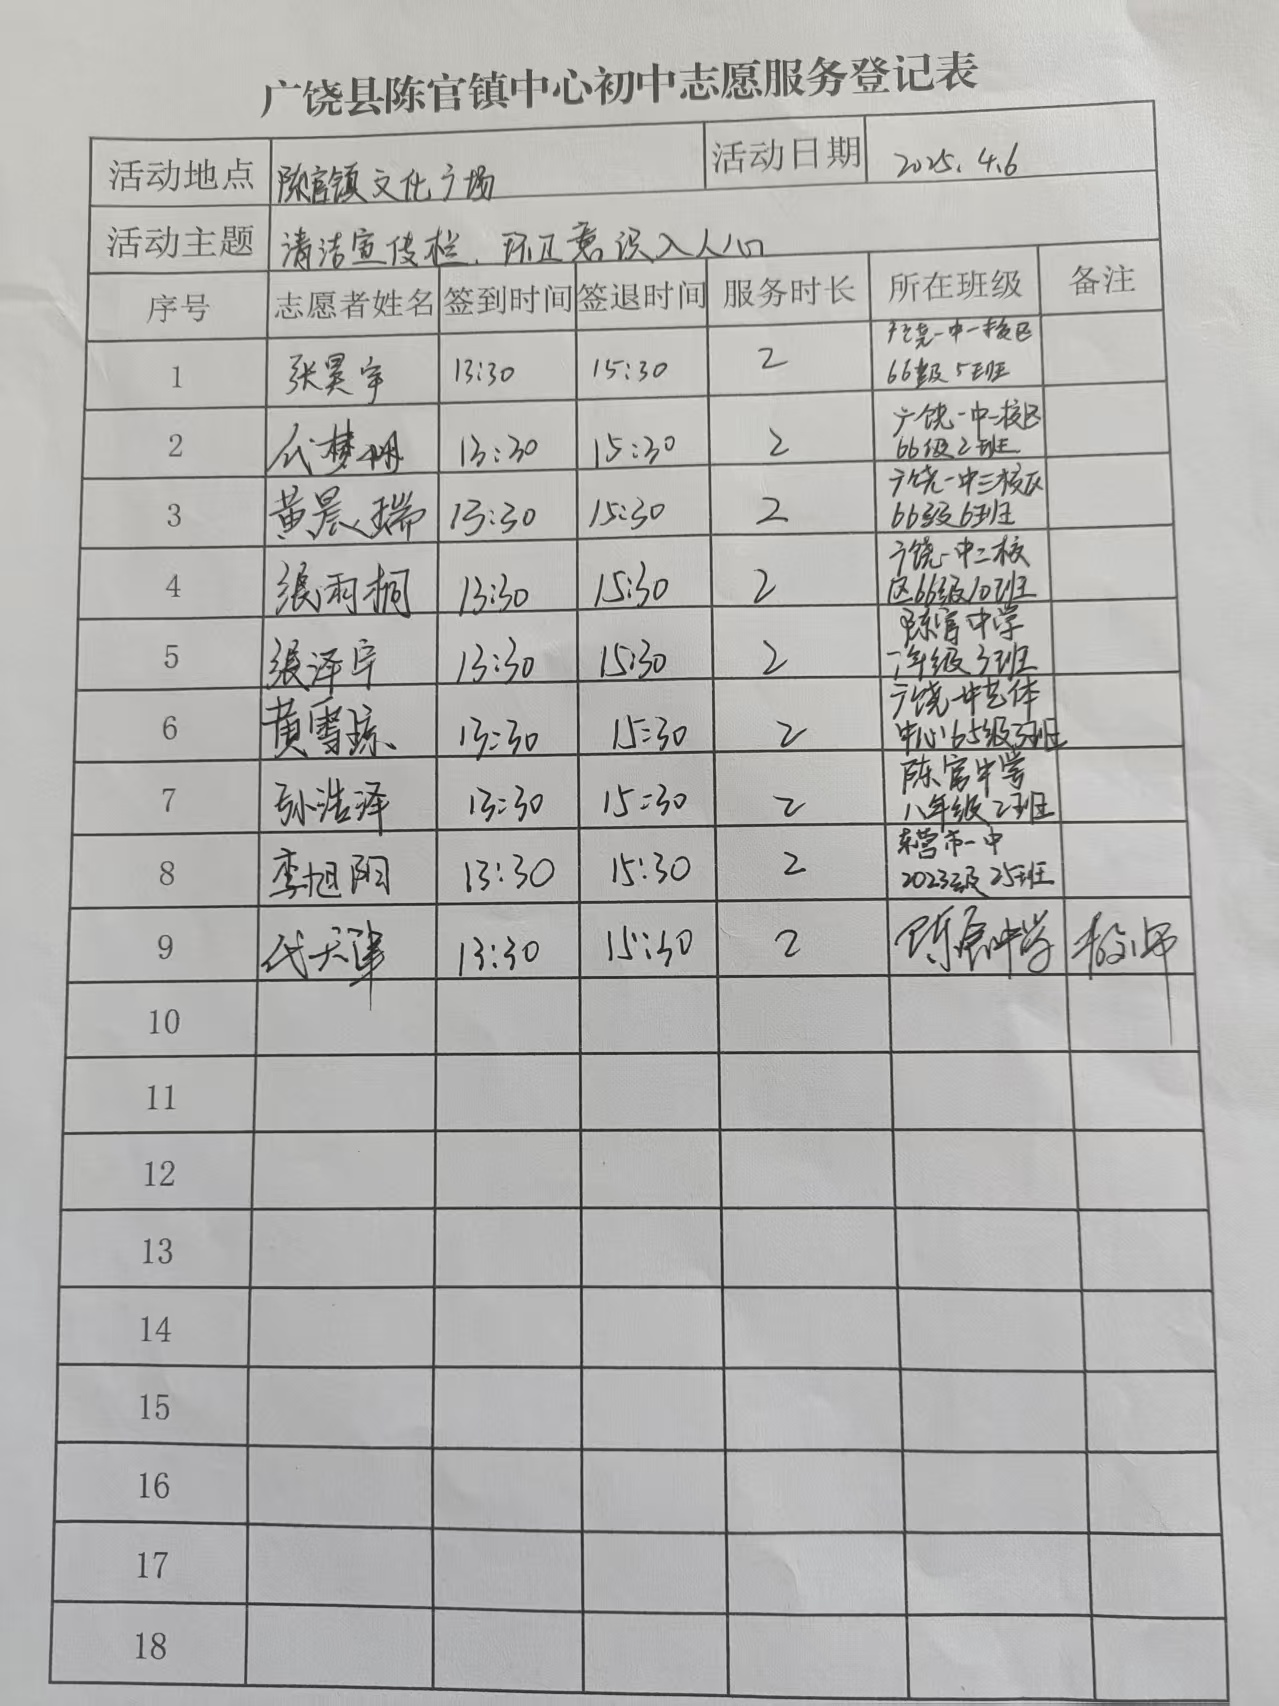 广饶县陈官镇中心初中志愿服务登记表
活动地点 陈官镇文化广场 活动日期 2025.4.6
活动主题 清洁宣传栏,环卫意识入人心
序号 志愿者姓名 签到时间 签退时间 服务时长 所在班级 备注
1 张昊宇 13:30 15:30 2 广饶一中一校区
66级5班
2 代梦 13:30 15:30 2 广饶一中二校区
66级2班
3 黄晨瑞 13:30 15:30 2 广饶一中三校区
66级6班
4 张雨桐 13:30 15:30 2 广饶一中二校
区66级10班
5 张泽宇 13:30 15:30 2 陈官中学
年级3班
6 黄雪琼 13:30 15:30 2 广饶一中艺体
中心65级3班
7 孙浩泽 13:30 15:30 2 陈官中学
八年级2班
8 李旭阳 13:30 15:30 2 东营市一中
2023级25班
9 代天泽 13:30 15:30 2 陈官中学 教师
10
11
12
13
14
15
16
17
18